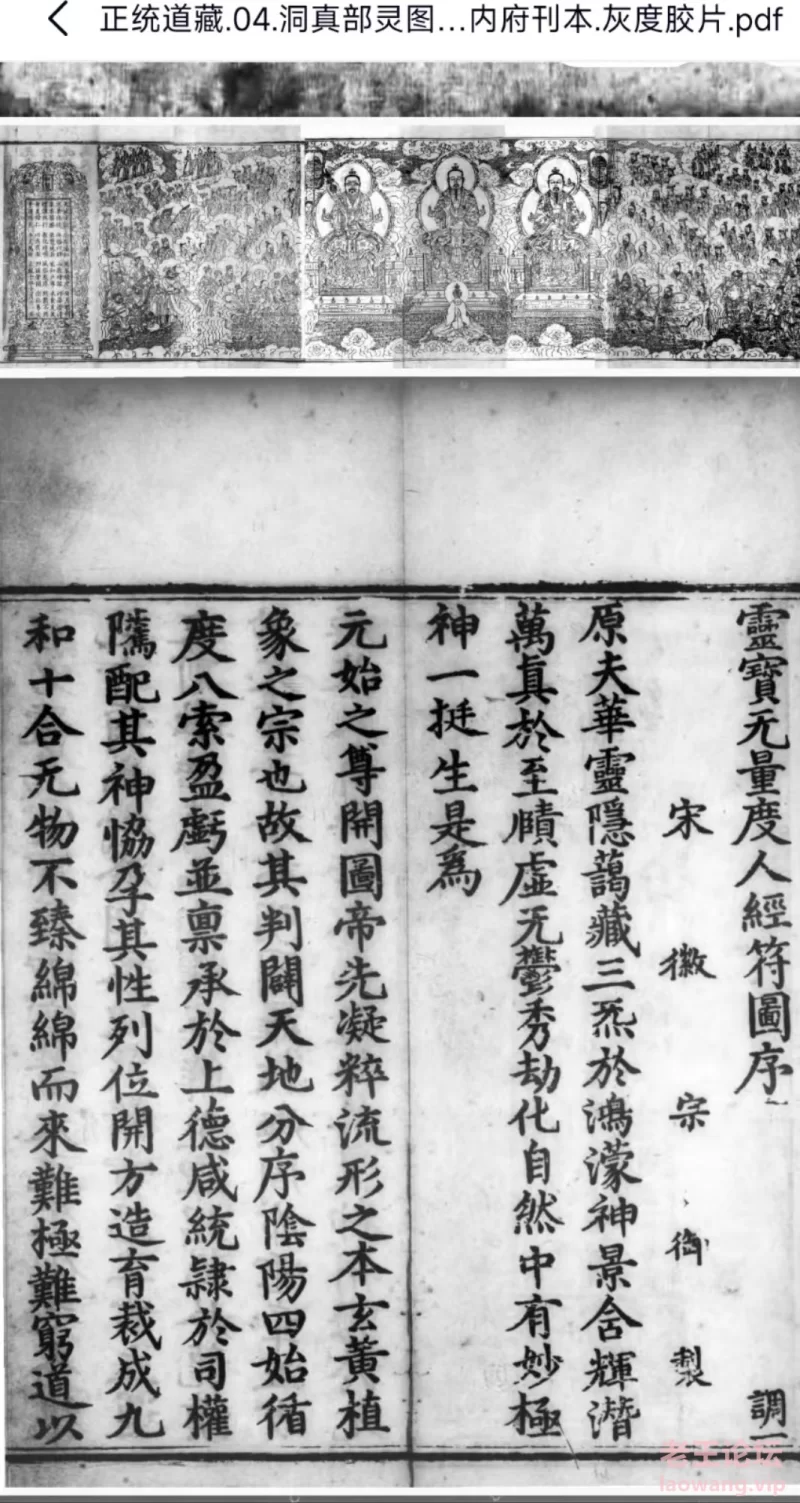 正统道藏.04.洞真部灵图...内府刊本.灰度胶片.pdf
靈寶无量度人經符圖序
調一
宋徽宗御製
原夫華靈隱藹藏三炁於鴻濛神景含輝潛
萬真於至賾虛无鬱秀劫化自然中有妙極
神一挺生是為
元始之尊開圖帝先凝粹流形之本玄黃植
象之宗也故其判闢天地分序陰陽四始循
度八索盈虧並稟承於上德咸統隸於司權
隲配其神恊孕其性列位開方造育裁成九
和十合无物不臻綿綿而來難極難窮道以
老王论坛
laowang.vip